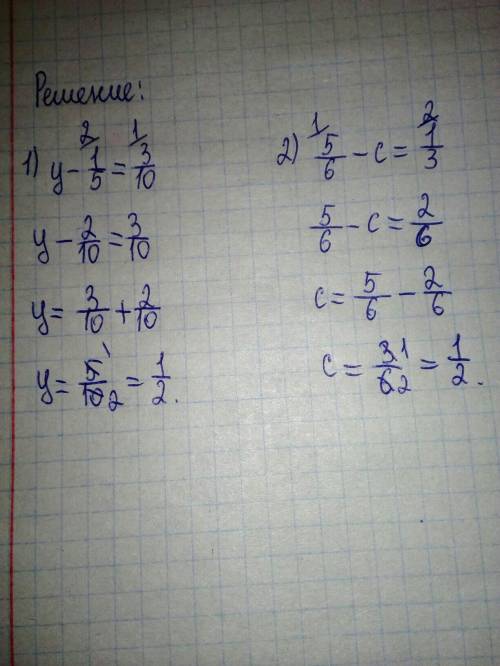 Решение:
1) y - 2/ 1/5 = 1/ 3/10
y - 2/10 = 3/10
y = 3/10 + 2/10
y = 5 1/10 2 = 1/2.
2) 1/ 5/6 - c = 2/ 1/3
5/6 - c = 2/6
c = 5/6 - 2/6
c = 3 1/6 2 = 1/2.